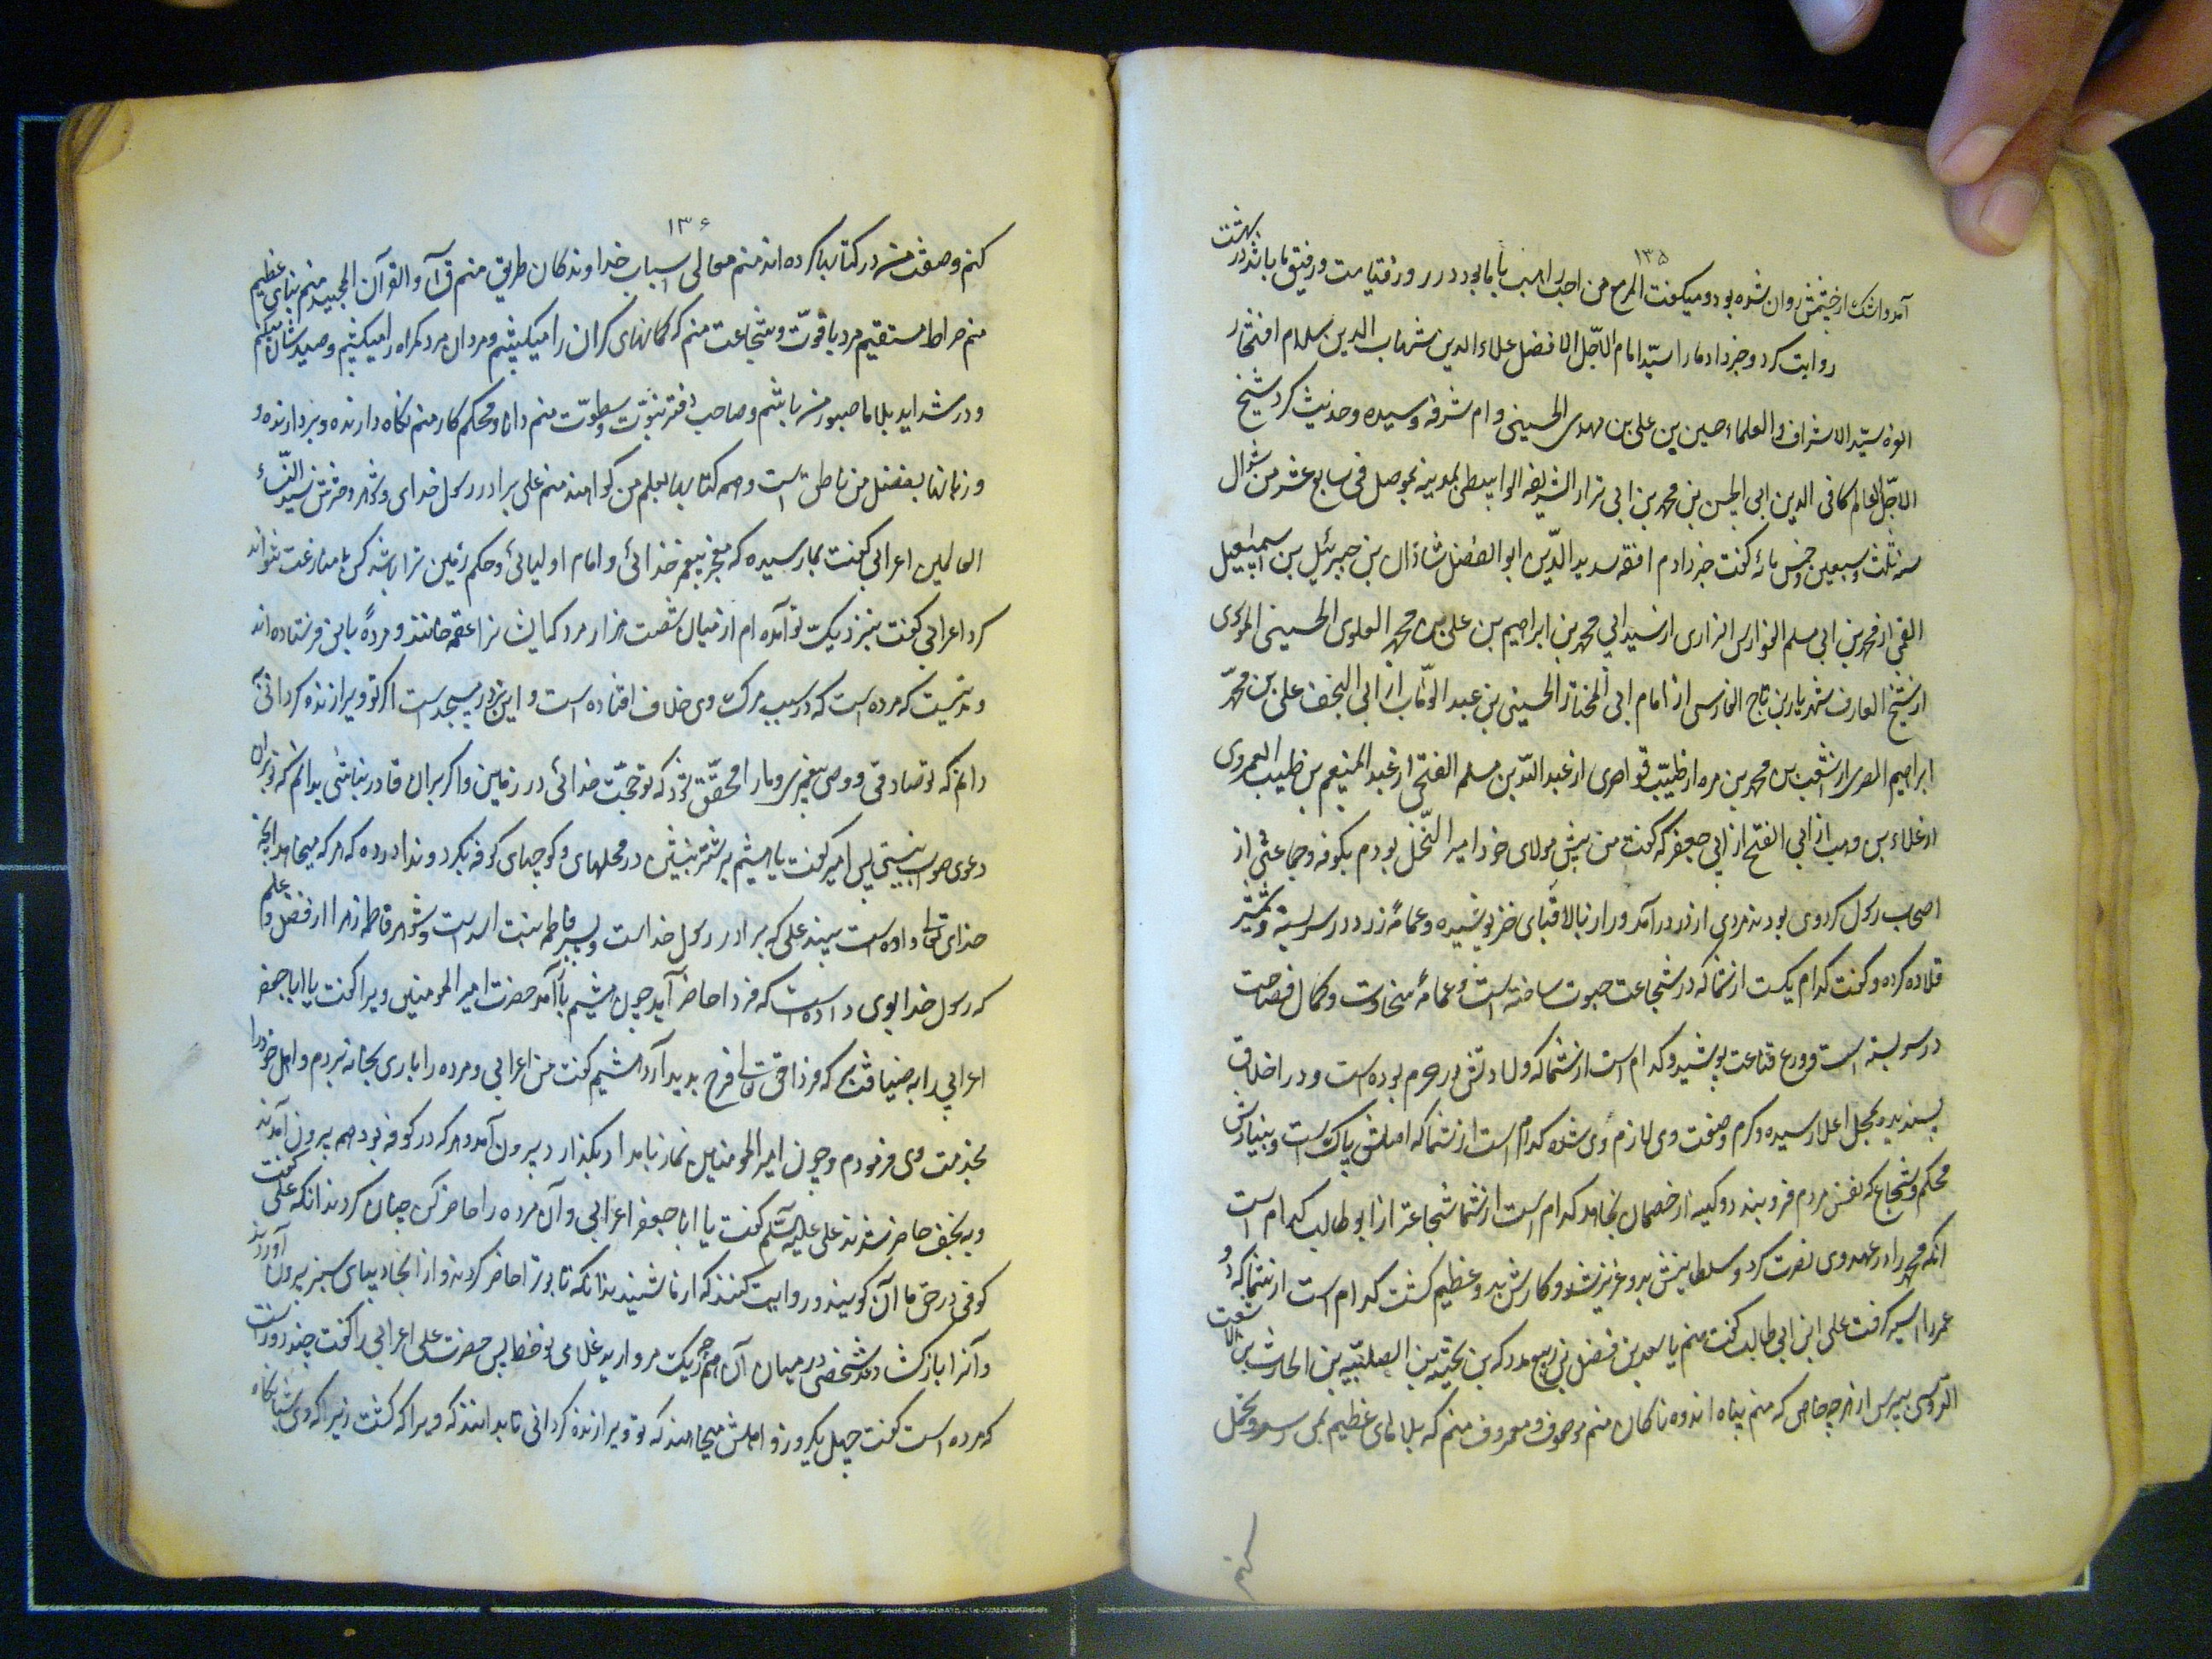 ۱۳۵
آمد و اشک از چشمش روان شده بود و میگفت المرء مع من احب اهل بیت با ما بود در روز قیامت و رفیق ما باشد در بهشت
روایت کرد و خبر داد ما را سیّد امام الاجّل الافضل علاء الدین شهاب الدین سلام افتخار
سیّد الاشراف و العلماء حسین بن علی بن مهدی الحسینی دام شرفه و سیده و حدیث کرد شیخ
الاجّل العالم کافی الدین ابی الحسن بن محمد بن ابی نزار الشریفه الواسطی بمدینه موصل فی سابع عشر من شوال
سنه ثلث و سبعین و خمس مائه گفت خبر دادم افقه سدید الدّین ابو الفضل شاذان بن جبرئیل بن اسمعیل
القمی از محمد بن ابی مسلم الفوارس الرازی از سید ابی محمد بن ابراهیم بن علی بن محمد العلوی الحسینی الموسوی
از شیخ العارف شهریار بن تاج الفارسی از امام ابی المختار الحسینی بن عبد الوهّاب از ابی النجف علی بن محمّد
ابراهیم المصری از اشعب بن محمد بن مره از طیّب قواصری از عبد اللّه بن مسلم الفتحی از عبد المنیعم بن طبیب العمروی
از علاء بن وهب از ابی الفتح از ابی جعفر که گفت من پیش مولای خود امیر النّحل بودم بکوفه و جماعتی از
اصحاب رسول گرد وی بودند مردی از در درآمد و راز بالا قبای خز پوشیده و عمامهٔ زرد در سر بسته و شمشیر
قلاده کرده و گفت کدام یکست از شما که در شجاعت حبوت ساخته است و عمامهٔ سخاوت و کمال فصاحت
در سر بسته است و ورع قناعت پوشید و کدام است از شما که ولادتش در حرم بوده است و در اخلاق
پسندیده محل اعلا رسیده و کرم وصفت وی لازم وی شده کدام است از شما که اصلش پاک است و بنیادش
محکم و شجاع که نفس مردم فرو بندد و کینه از خصمان بخواهد کدام است از شما شجاعتر از ابو طالب کدام است
آنکه محمد را در عهد وی نصرت کرد و سلطانیش بدو عزیز شد و کارش بدو عظیم گشت کدام است از شما که دو
عمرو را اسیر گرفت علی ابن ابی طالب گفت منم یا سعد بن فضل بن ربیع مدرکه بن نجیبه بن الصلتیه بن الحارث بن الاشعث
الدّوسی بپرس از هر چه خواهی که منم پناه اندوه ناکان منم موصوف و معروف منم که بلاهای عظیم بمن رسد و تحمل
۱۳۶
کنم وصفت من در کتابها کرده اند منم معالی اسباب خداوندگان طریق منم ق و القرآن المجید منم نبای عظیم
منم صراط مستقیم مرد با قوّت و شجاعت منم که کمانهای گران را میکشیم و مردان مرد گمراه را میکشیم و صید ایشان بیکنم
و در شداید بلاها صبور من باشم و صاحب دفتر نبوّت و سطوّت منم دانا و محکم کار منم نگاه دارنده و بردارنده و
و زبانها بفضل من ناطق است و همه کتابها بعلم من گواهند منم علی برادر رسول خدای و شوهر دخترش سیده النّساء
العالمین اعرابی گفت بما رسیده که معجز پیغمبر خدائی و امام اولیائی و حکم زمین ترا باشد کس با منازعت نتواند
کرد اعرابی گفت بنزدیک تو آمده ام از میان شصت هزار مرد که ایشان را عقمه خوانند و مردهٔ با من فرستاده اند
و مدتیست که مرده است که در سبب مرگ وی خلاف افتاده است و این بر در مسجد است اگر تو ویرا زنده گردانی
دانم که تو صادقی و وصی پیغمبری و ما را محقّق شود که تو حجّت خدائی در زمین و اگر بر آن قادر نباشی بدانم که تو برآن
دعوی صواب نیستی پس امیر گفت یا میثم بر شتر بنشین در محلهای و کوچهای کوفه بگرد و ندا در ده که هر که میخواهد آنچه
خدای تعالی داده است ببیند علی که برادر رسول خداست و پسر فاطمه بنت اسد است و شوهر فاطمه زهرا از فضل و علم
که رسول خدا بوی داده است که فردا حاضر آید چون میثم باز آمد حضرت امیر المومنین ویرا گفت یا ابا جعفر
اعرابی را به ضیافت بر که فردا حق تعالی فرج پدید آرد میثم گفت من اعرابی و مرده را باری بخانه بردم و اهل خود را
بخدمت وی فرمودم و چون امیر المومنین نماز بامداد بگذارد بیرون آمد و هر که در کوفه بود همه بیرون آمدند
و به نجف حاضر شدند علی علیه السّلام گفت یا ابا جعفر اعرابی و آن مرده را حاضر کن چنان کردند آنکه علی گفت
کوفی در حق ما آن گویید و روایت کنند که از ما شنیدند آنکه تابوت را حاضر کردند و از آنجا دیبای سبز بیرون آوردند
و آنرا باز گشادند شخصی در میان آن هم چون یک مروارید غلامی نو خط پس حضرت علی اعرابی را گفت چند روز است
که مرده است گفت چهل یکروز و اهلش میخواهند که تو ویرا زنده گردانی تا بدانند که ویرا که کشت زیرا که وی شبانگاه